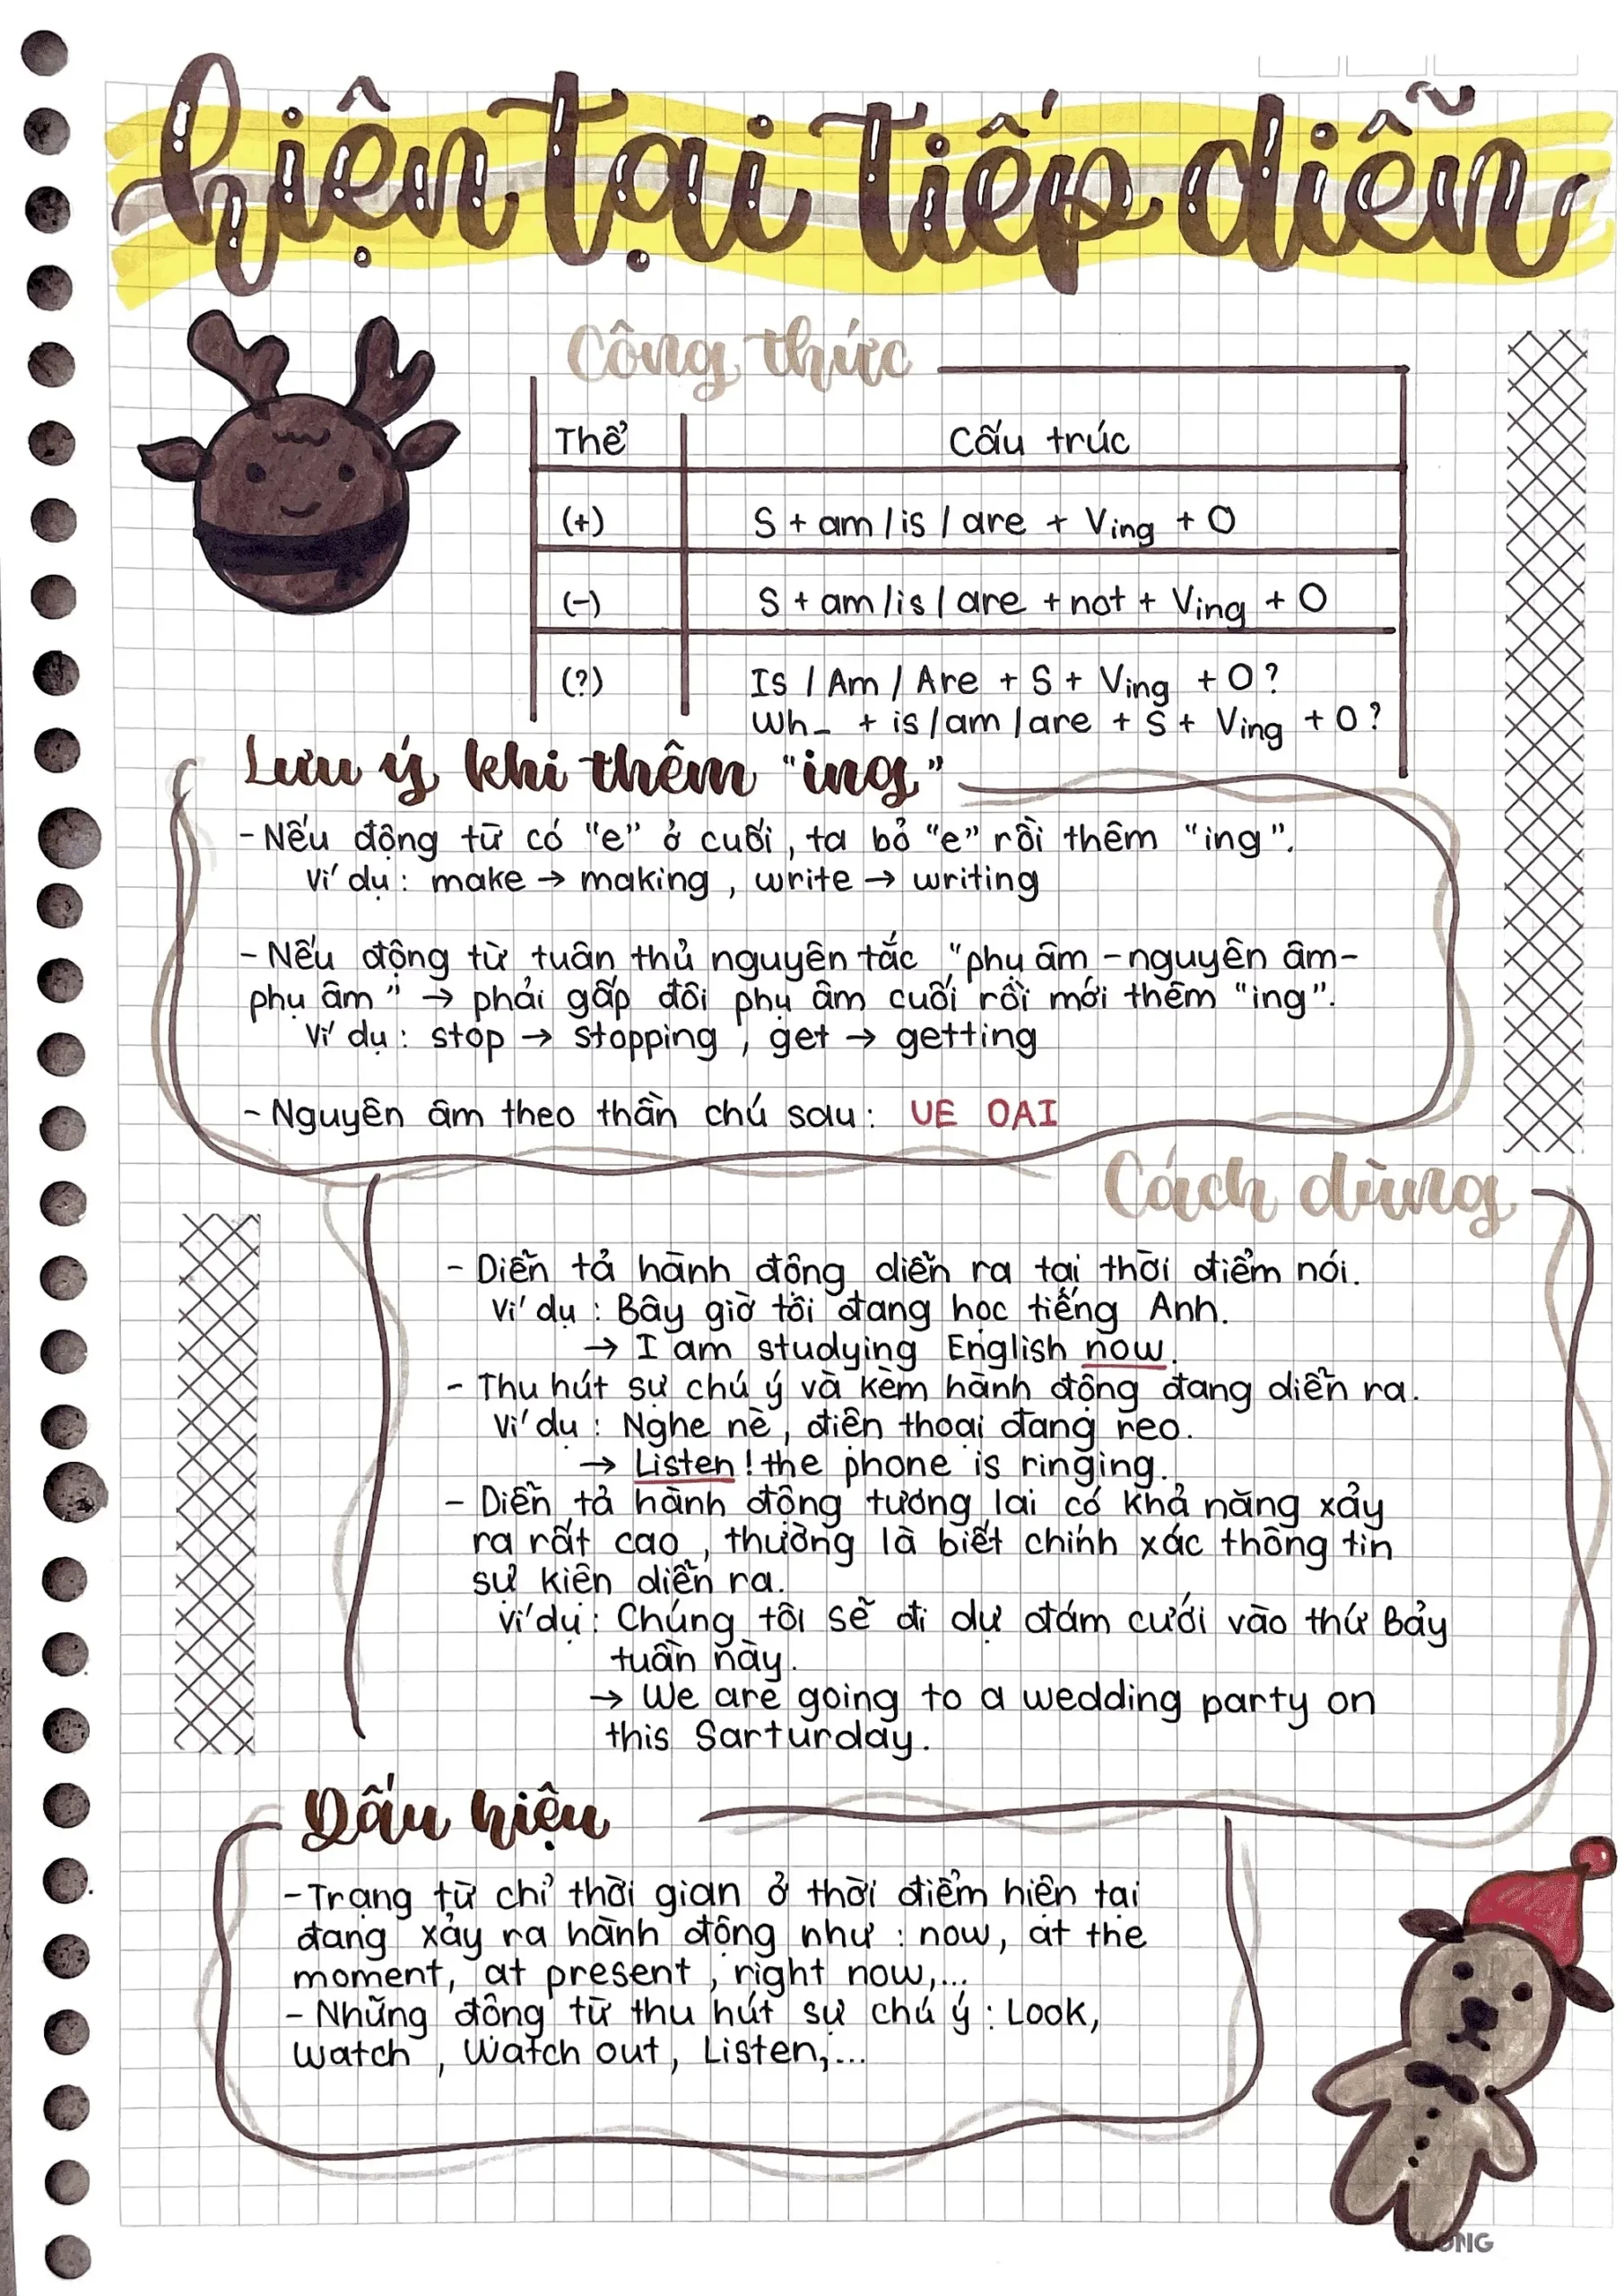 hiện tại tiếp diễn
Công thức
Thể Cấu trúc
(+) S + am / is / are + Ving + O
(-) S + am / is / are + not + Ving + O
(?) Is / Am / Are + S + Ving + O ?
Wh_ + is / am / are + S + Ving + O ?
Lưu ý khi thêm "ing"
- Nếu động từ có "e" ở cuối, ta bỏ "e" rồi thêm "ing".
Ví dụ : make → making , write → writing
- Nếu động từ tuân thủ nguyên tắc "phụ âm - nguyên âm -
phụ âm" → phải gấp đôi phụ âm cuối rồi mới thêm "ing".
Ví dụ : stop → stopping , get → getting
- Nguyên âm theo thần chú sau : UE OAI
Cách dùng
- Diễn tả hành động diễn ra tại thời điểm nói.
Ví dụ : Bây giờ tôi đang học tiếng Anh.
→ I am studying English now.
- Thu hút sự chú ý và kèm hành động đang diễn ra.
Ví dụ : Nghe nè, điện thoại đang reo.
→ Listen ! the phone is ringing.
- Diễn tả hành động tương lai có khả năng xảy
ra rất cao , thường là biết chính xác thông tin
sự kiện diễn ra.
Ví dụ : Chúng tôi sẽ đi dự đám cưới vào thứ Bảy
tuần này.
→ We are going to a wedding party on
this Sarturday.
Dấu hiệu
- Trạng từ chỉ thời gian ở thời điểm hiện tại
đang xảy ra hành động như : now, at the
moment, at present , right now,...
- Những động từ thu hút sự chú ý : Look,
Watch , Watch out, Listen,...
KLONG